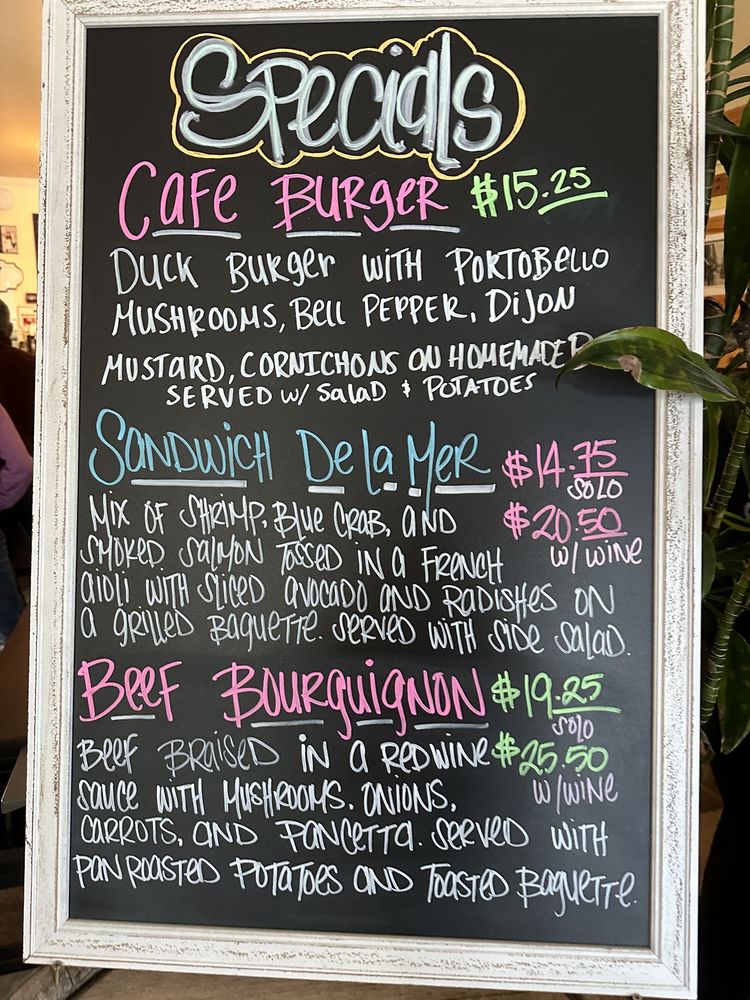 Specials
Cafe Burger $15.25
Duck Burger with Portobello
Mushrooms, Bell Pepper, Dijon
Mustard, Cornichons on Homemade
Served w/ Salad & Potatoes
Sandwich De la Mer $14.75
Solo
Mix of Shrimp, Blue Crab, and $20.50
Smoked Salmon Tossed in a French w/ wine
aioli with sliced avocado and radishes on
a grilled baguette. Served with side salad.
Beef Bourguignon $19.25
Solo
Beef Braised in a red wine $25.50
sauce with mushrooms, onions, w/wine
carrots, and pancetta. Served with
pan roasted potatoes and toasted baguette.